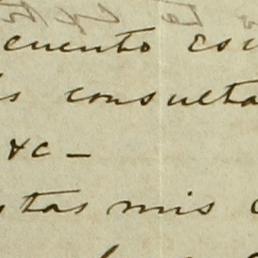 cuento es
s consulta
&c –
stas mis